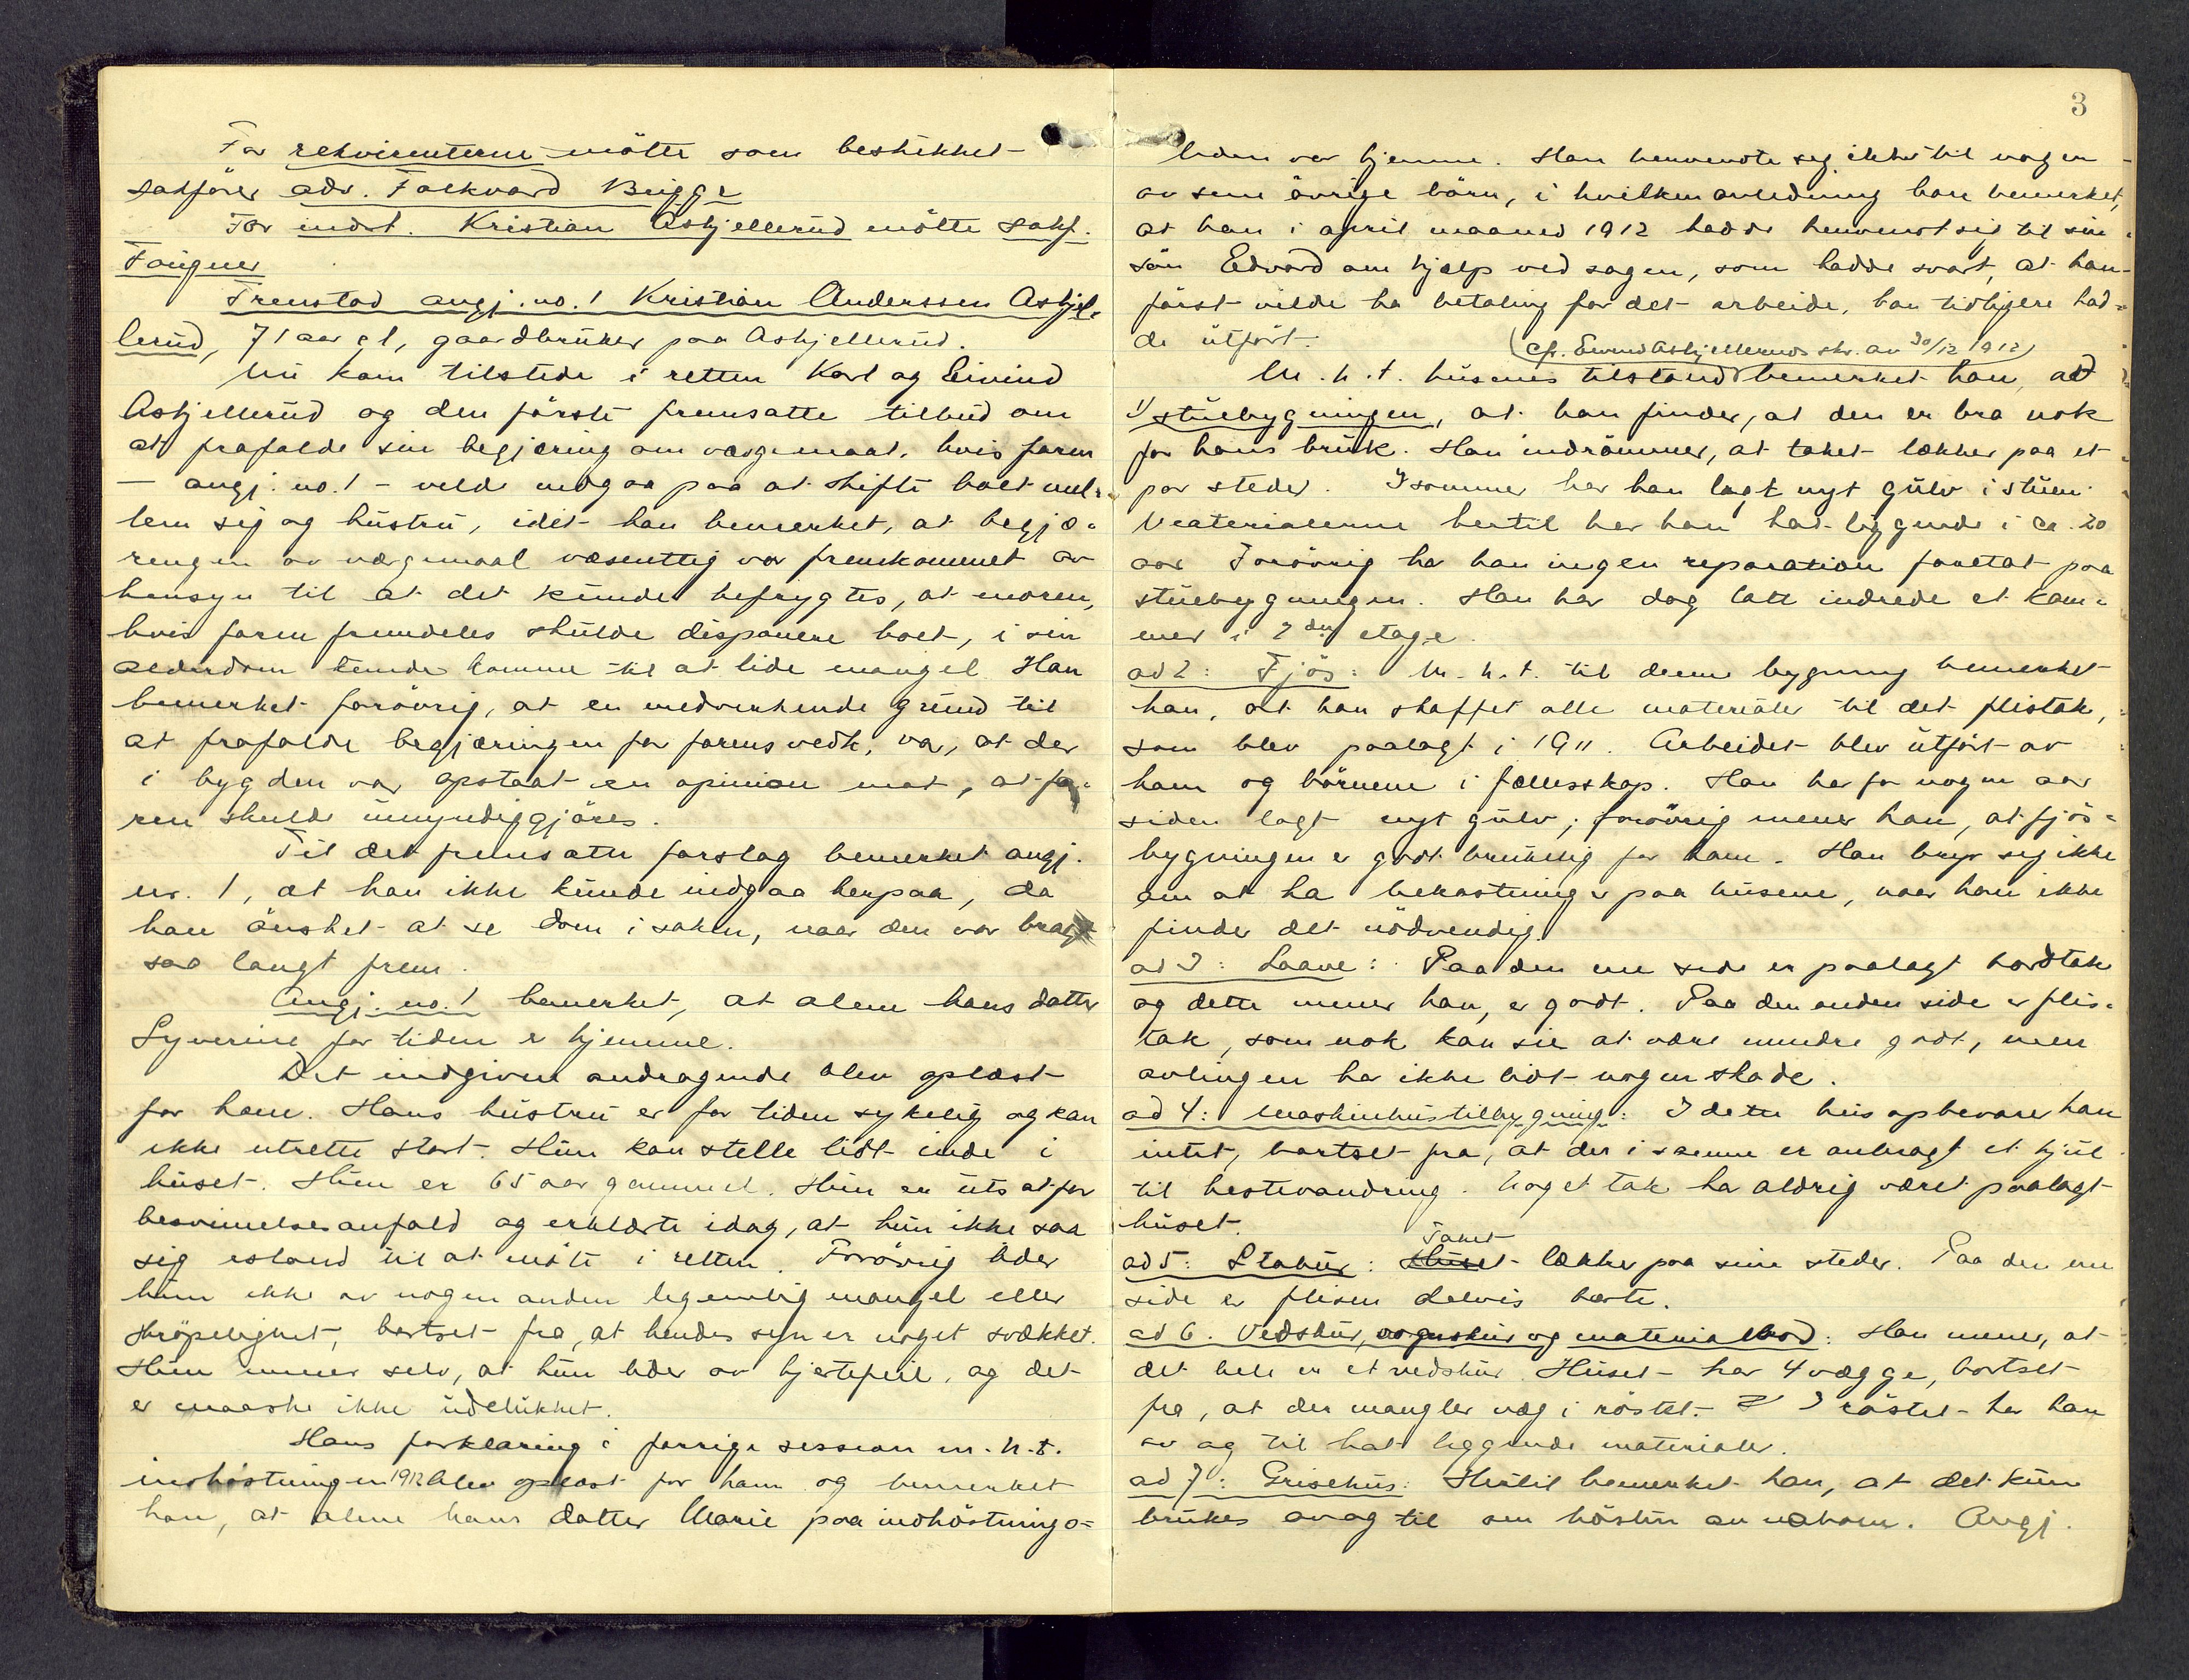 For rekvirenterne mötte som beskikket
sakförer adv. Folkvard Brügge
For indst. Kristian Askjellerud mötte sakf.
Fougner
Fremstod angj. no. 1 Kristian Anderssen Askjel-
lerud, 71 aar gl, gaardbruker paa Askjellerud.
Nu kom tilstede i retten Karl og Eivind
Askjellerud og den förste fremsatte tilbud om
at frafalde sin begjæring om værgemaal, hvis faren
– angj. no. 1 – vilde indgaa paa at skifte boet mel-
lem sig og hustru, idet han bemerket, at begjæ-
ringen av værgemaal væsentlig var fremkommet av
hensyn til at det kunde befrygtes, at moren,
hvis faren fremdeles skulde disponere boet, i sin
alderdom kunde komme til at lide mangel. Han
bemerket forövrig, at en medvirkende grund til
at frafalde begjæringen for farens vedk. var, at der
i bygden var opstaat en opinion mot, at fa-
ren skulde umyndiggjöres.
Til det fremsatte forslag bemerket angj.
nr. 1, at han ikke kunde indgaa herpaa, da
han önsket at se dom i saken, naar den var bragt
saa langt frem.
Angj. no. 1 bemerket, at alene hans datter
Syverine for tiden er hjemme.
Det indgivne andragende blev oplæst
for ham. Hans hustru er for tiden sykelig og kan
ikke utrette stort. Hun kan stelle lidt inde i
huset. Hun er 65 aar gammel. Hun er utsat for
besvimelsesanfald og erklærte idag, at hun ikke saa
sig istand til at möte i retten. Forövrig lider
hun ikke av nogen anden legemlig mangel eller
skröpelighet, bortset fra, at hendes syn er noget svækket.
Hun mener selv, at hun lider av hjertefeil, og det
er maaske ikke udelukket.
Hans forklaring i forrige session m.h.t.
indhöstningen 1912 blev oplæst for ham og bemerket
han, at alene hans datter Marie paa indhöstnings-
3
tiden var hjemme. Han henvendte sig ikke til nogen
av sine övrige börn, i hvilken anledning han bemerket,
at han i april maaned 1912 hadde henvendt sig til sin
sön Edvard om hjælp ved sagen, som hadde svart, at han
först vilde ha betaling for det arbeide, han tidligere had-
de utfört.
(cfr. Eivind Askjelleruds skr. av 30/12 1912)
M.h.t. husenes tilstand bemerket han, ad
1) stuebygningen, at han finder, at den er bra nok
for hans bruk. Han indrömmer, at taket lækker paa et
par steder. Isommer har han lagt nyt gulv i stuen.
Materialerne hertil har han hat liggende i ca. 20
aar. Forövrig har han ingen reparation foretat paa
stuebygningen. Han har dog latt indrede et kam-
mer i 2den etage.
ad 2: Fjös: M.h.t. til denne bygning bemerket
han, at han skaffet alle materialer til det flistak,
som blev paalagt i 1911. Arbeidet blev utfört av
ham og börnene i fællesskap. Han har for nogen aar
siden lagt nyt gulv; forövrig mener han, at fjös-
bygningen er godt brukelig for ham. Han bryr sig ikke
om at ha bekostninger paa husene, naar han ikke
finder det nödvendig.
ad 3: Laave: Paa den ene side er paalagt bordtak
og dette mener han, er godt. Paa den anden side er flis-
tak, som nok kan sies at være mindre godt, men
avlingen har ikke lidt nogen skade.
ad 4: Maskinhustilbygning: I dette hus opbevarer han
intet, bortset fra, at der i samme er anbragt et hjul
til hestevandring. Noget tak har aldrig været paalagt
huset.
ad 5: Stabur: Huset Taket lækker paa sine steder. Paa den ene
side er flisen delvis borte.
ad 6. Vedskur, vognskur og materialbod: Han mener, at
det hele er et vedskur. Huset har 4 vægge, bortset
fra, at der mangler væg i röstet. I röstet har han
av og til hat liggende materialer.
ad 7: Grisehus: Hertil bemerket han, at det kun
brukes av og til om hösten. Angj.